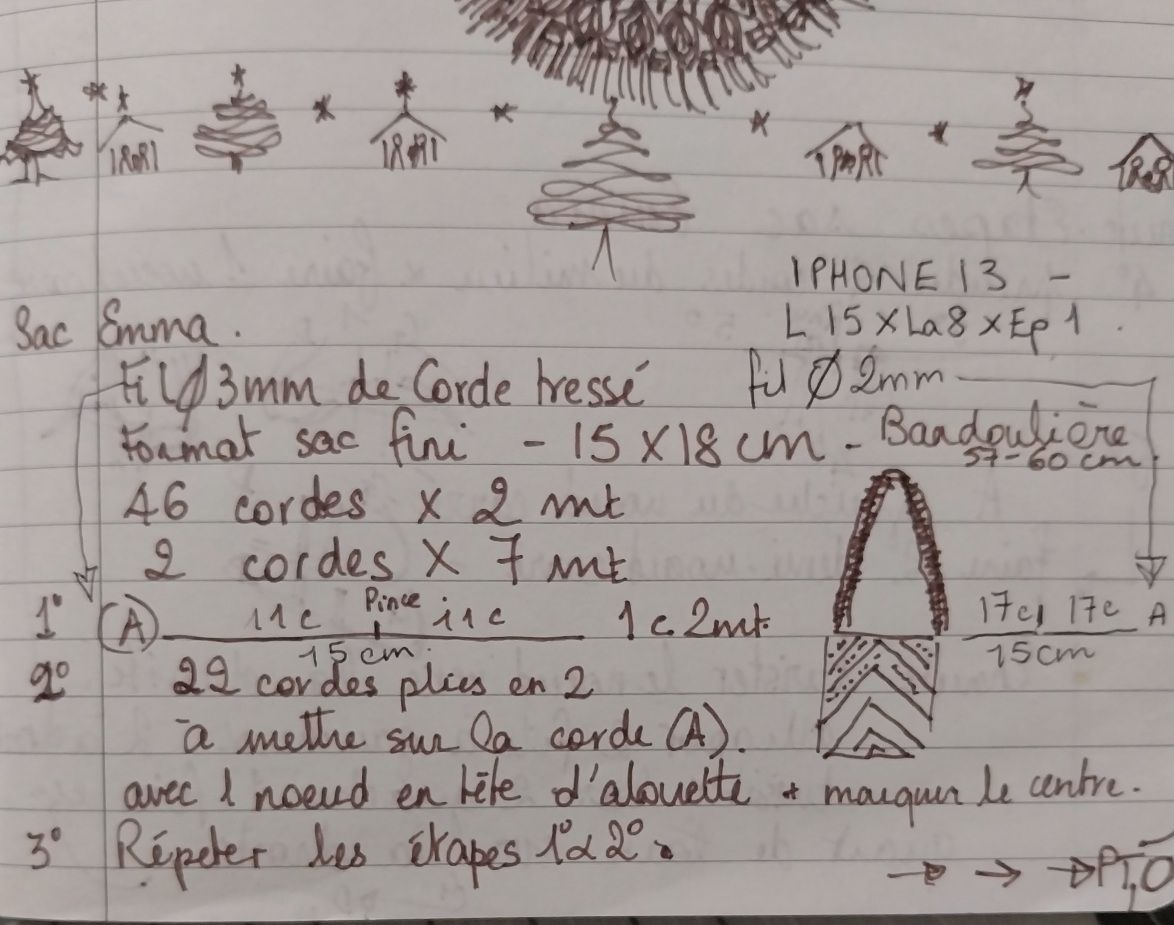 IPHONE 13 -
L 15 x La 8 x Ep 1.
Sac Emma.
Fil Ø 3mm de Corde tressé
fil Ø 2mm
Format sac fini - 15 x 18 cm - Bandoulière
57-60 cm
46 cordes x 2 mt
2 cordes x 7 mt
1° (A) 11c Pince 11c 1c. 2mt.
15 cm.
17c 17c A
15cm
2° 22 cordes plies en 2
à mettre sur la corde (A).
avec 1 noeud en tête d'alouette + marquer le centre.
3° Répeter les étapes 1° & 2°.
PTO